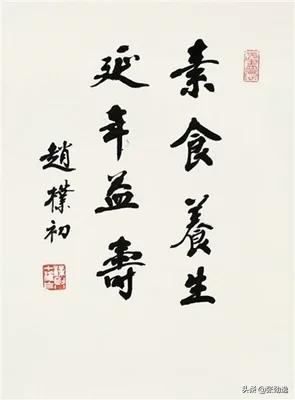 素食養生
延年益壽
趙樸初
头条@张劲逸